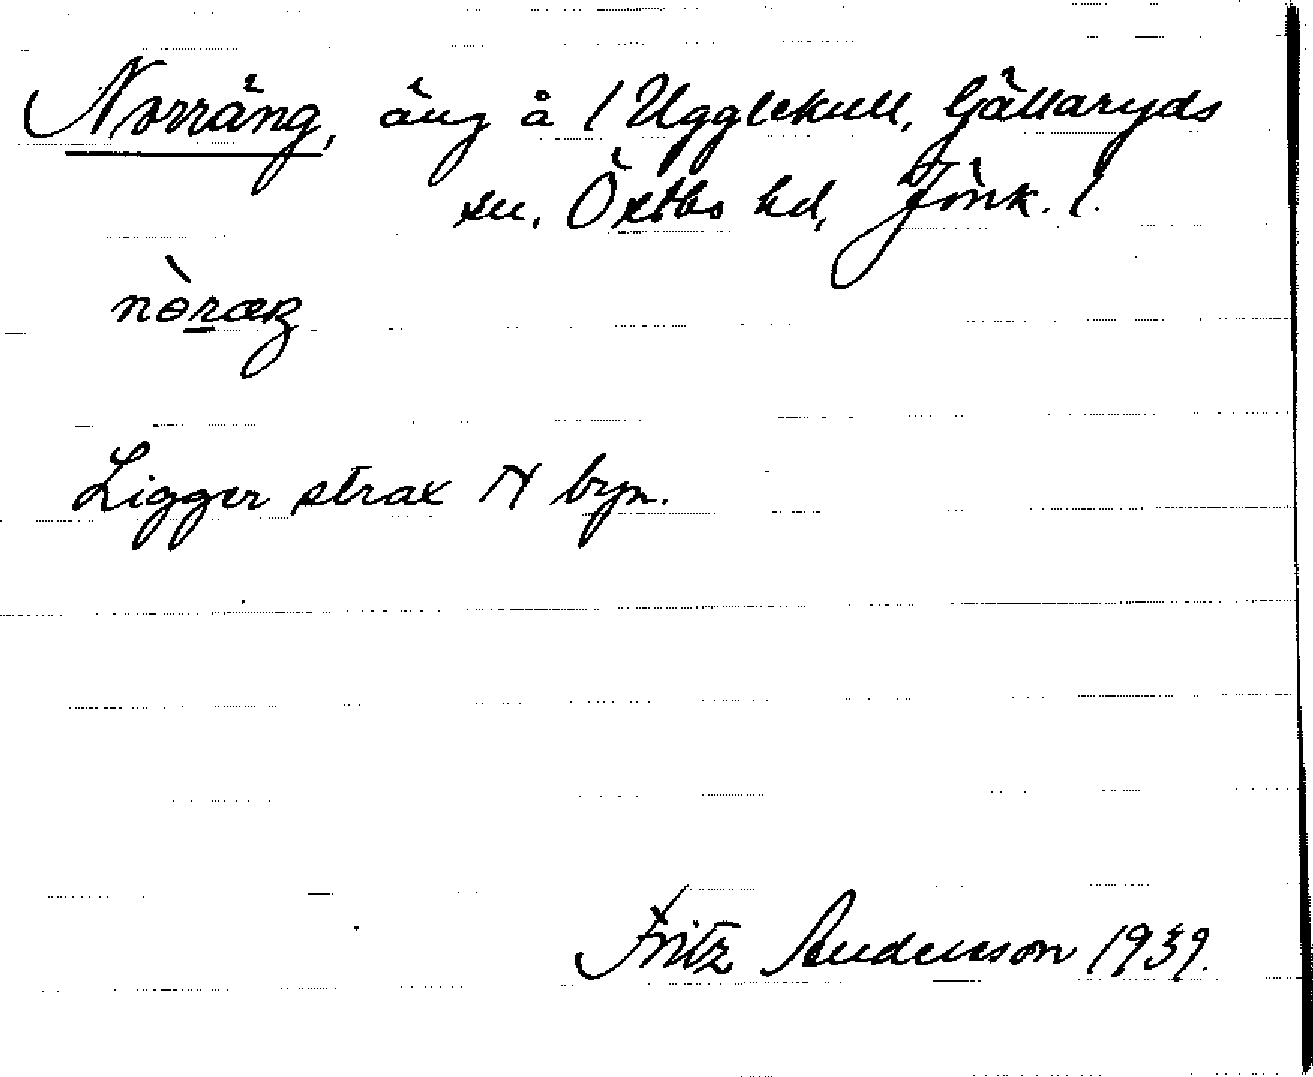 Norräng, äng å 1 Ugglekull, Gällaryds
sn. Östbo hd, Jönk. l.
nòraŋ
Ligger strax N byn.
Fritz Andersson 1939.